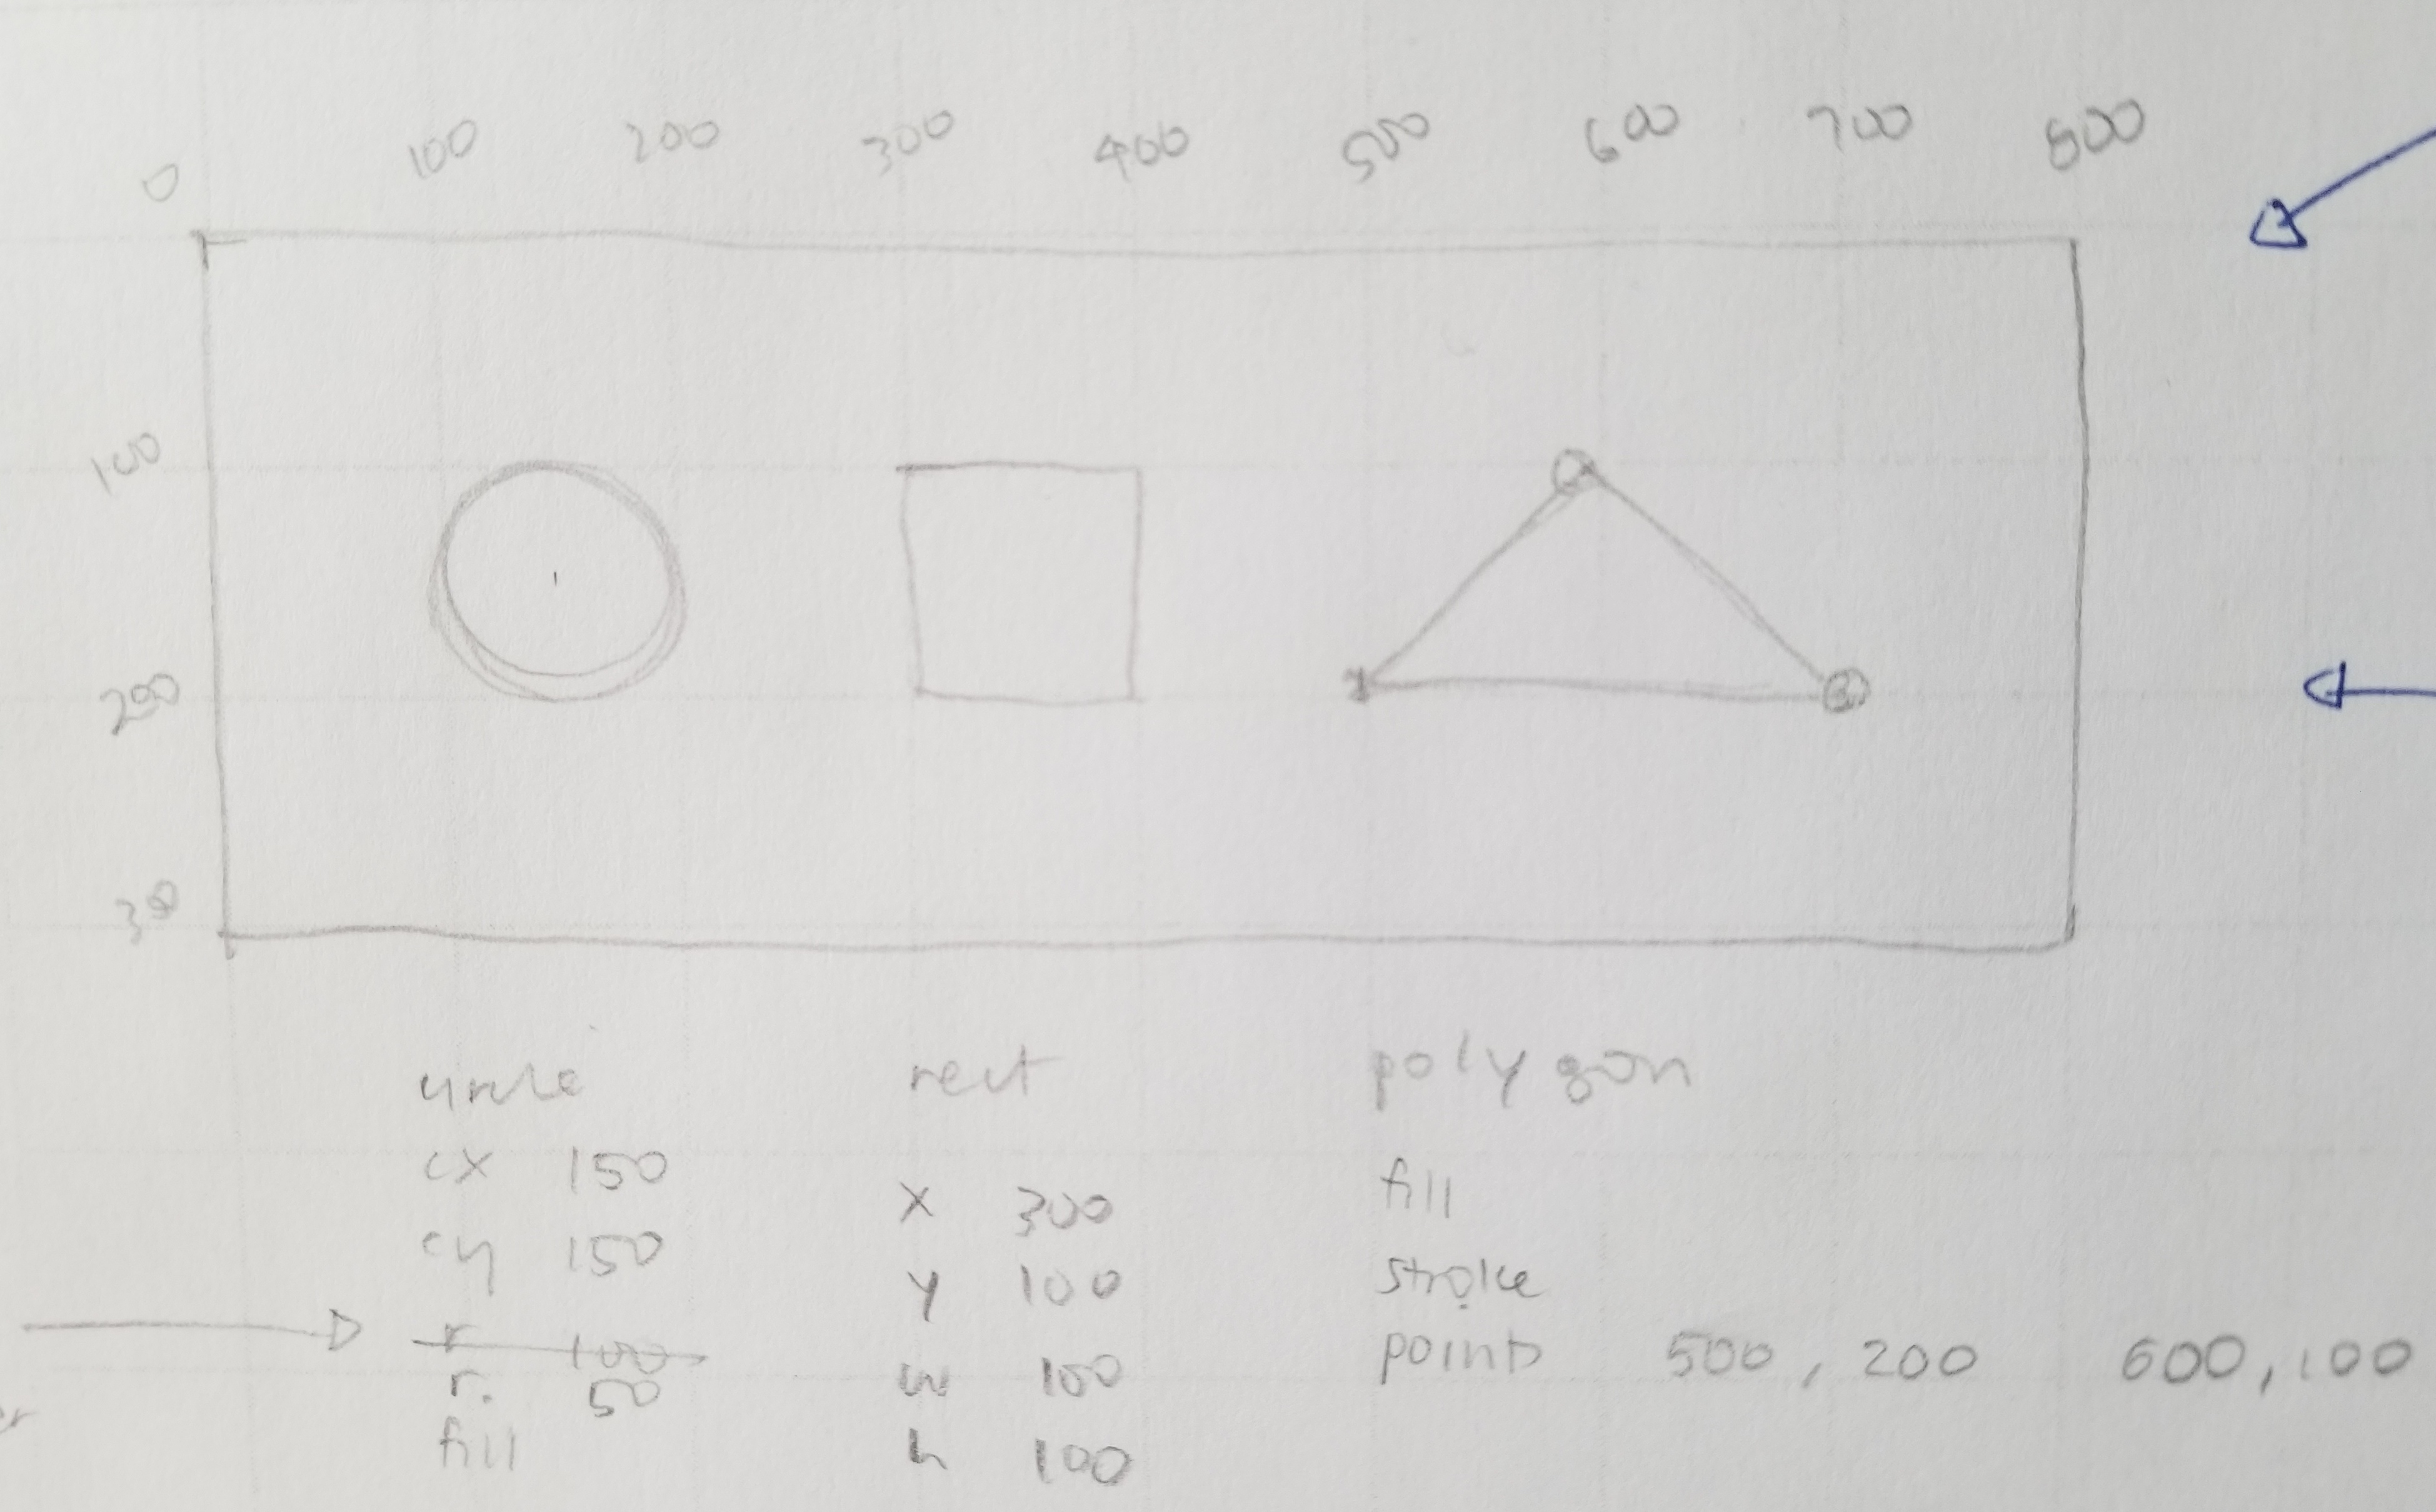 0 100 200 300 400 500 600 700 800
100
200
300
1
1 2 3
circle
cx 150
cy 150
r 100
r. 50
fill
rect
x 300
y 100
w 100
h 100
polygon
fill
stroke
points 500, 200 600, 100
er